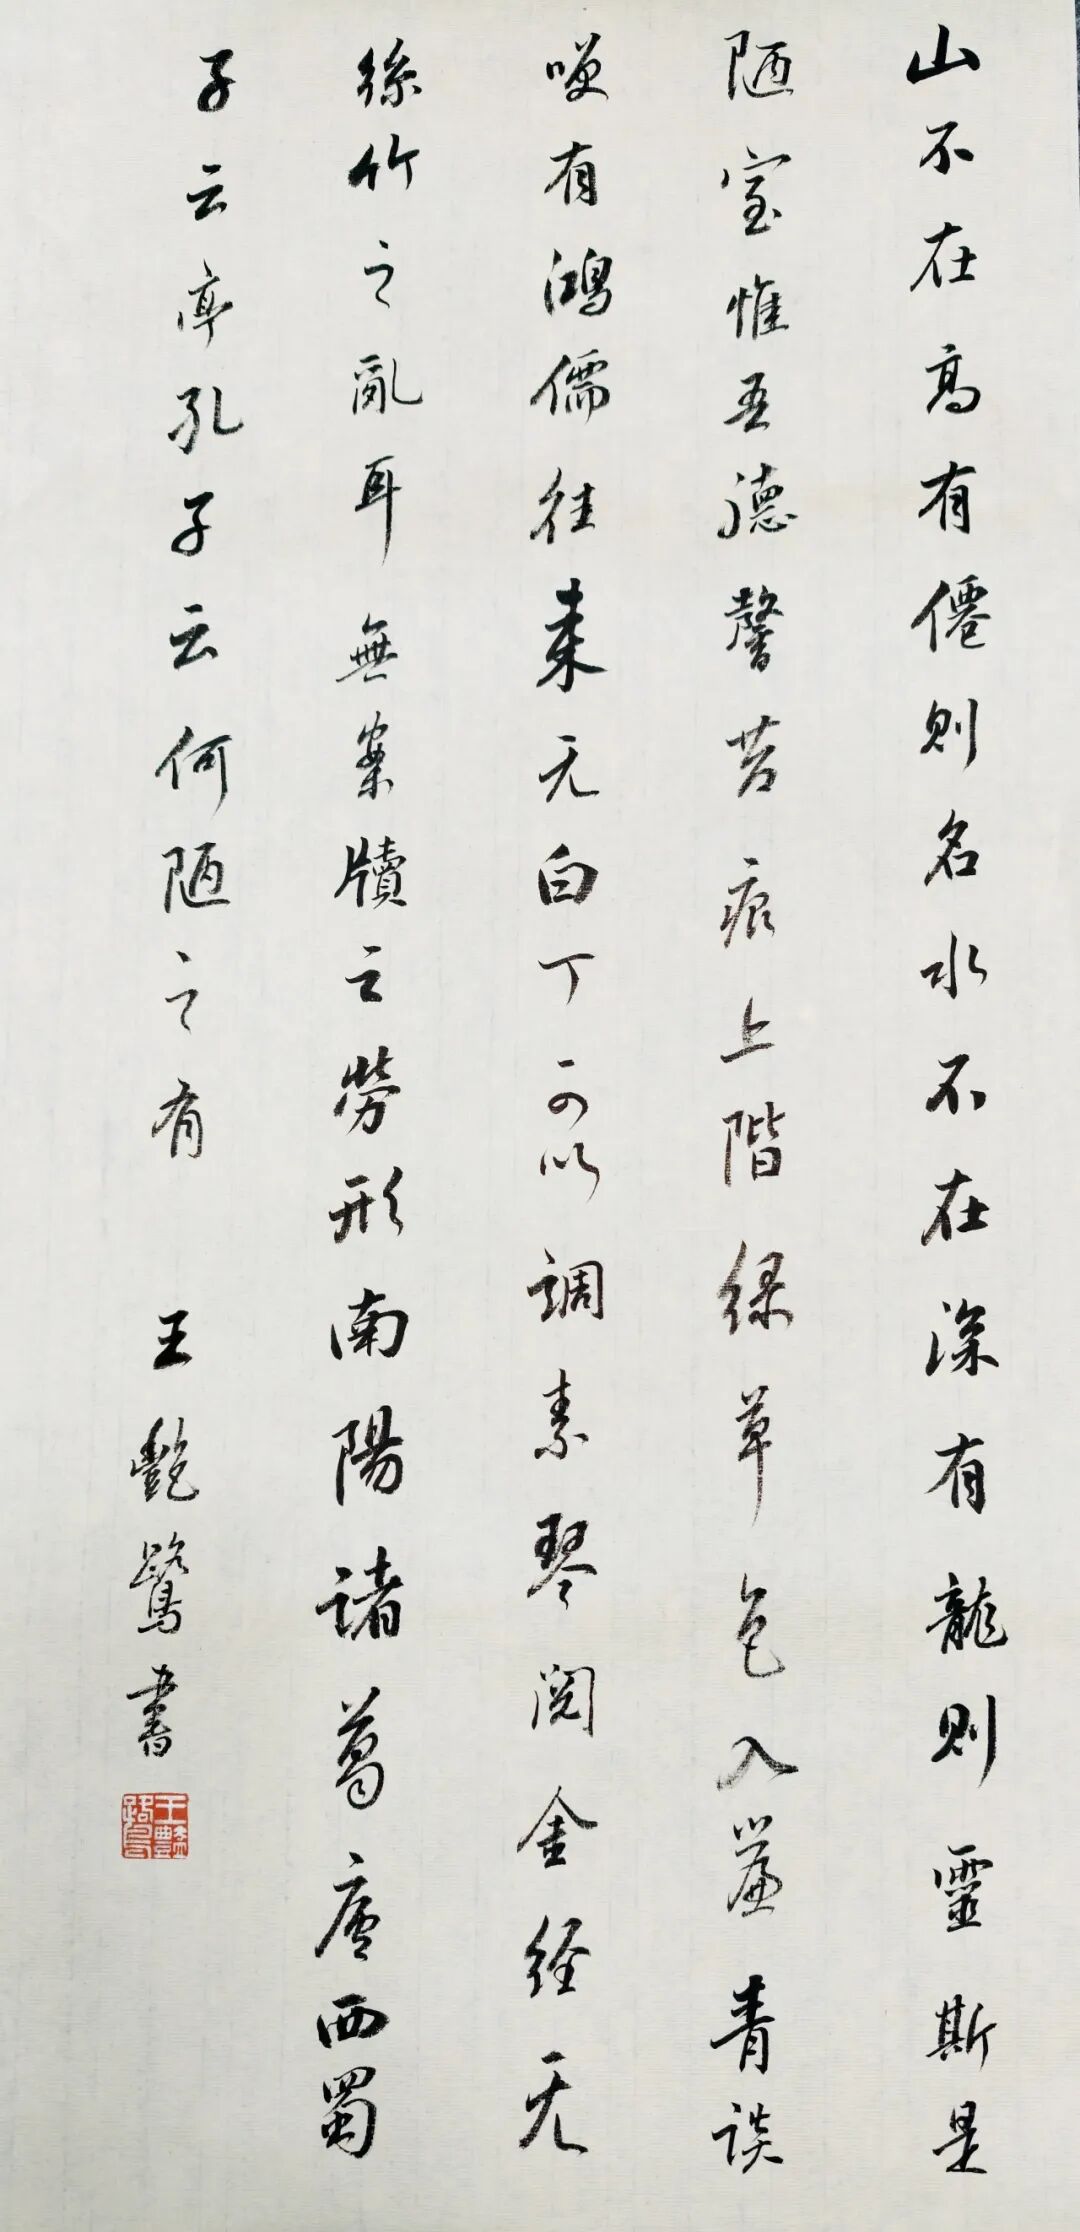 山不在高有僊則名水不在深有龍則靈斯是
陋室惟吾德馨苔痕上階緑草色入簾青談
咲有鴻儒往来无白丁可以調素琴閲金経无
絲竹之亂耳無案牘之勞形南陽諸葛廬西蜀
子云亭孔子云何陋之有 王艷鷺書
王艷鷺